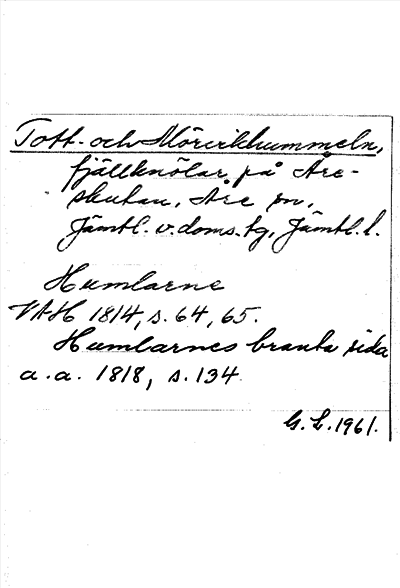 Tott- och Mörvikhummeln,
fjällknölar på Åre-
skutan, Åre sn,
Jämtl. v. doms. tg, Jämtl. l.
Humlarne
VAH 1814, s. 64, 65.
Humlarnes branta sida
a. a. 1818, s. 134
G. L. 1961.